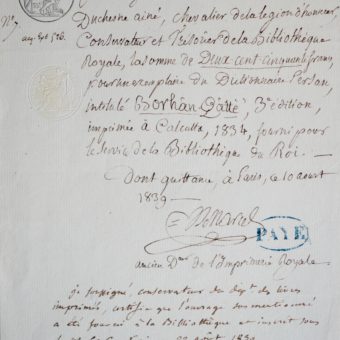 Duchesne ainé, chevalier de la legion d'honneur,
Nº 7
Conservateur et Trésorier de la Bibliothèque
Royale, la somme de Deux cent cinquante francs,
pour un exemplaire du Dictionnaire Persan,
intitulé Borhân Qâttè, 3e édition,
imprimée à Calcutta, 1834, fourni pour
le service de la Bibliothèque du Roi. —
Dont quittance, à Paris, ce 10 aout
1839 —
PAYÉ
ancien Dr de l'Imprimerie Royale
je soussigné conservateur du dépt des livres
imprimés, certifie que l'ouvrage sus mentionné
a été fourni à la Bibliothèque et inscrit sous
aout 1839